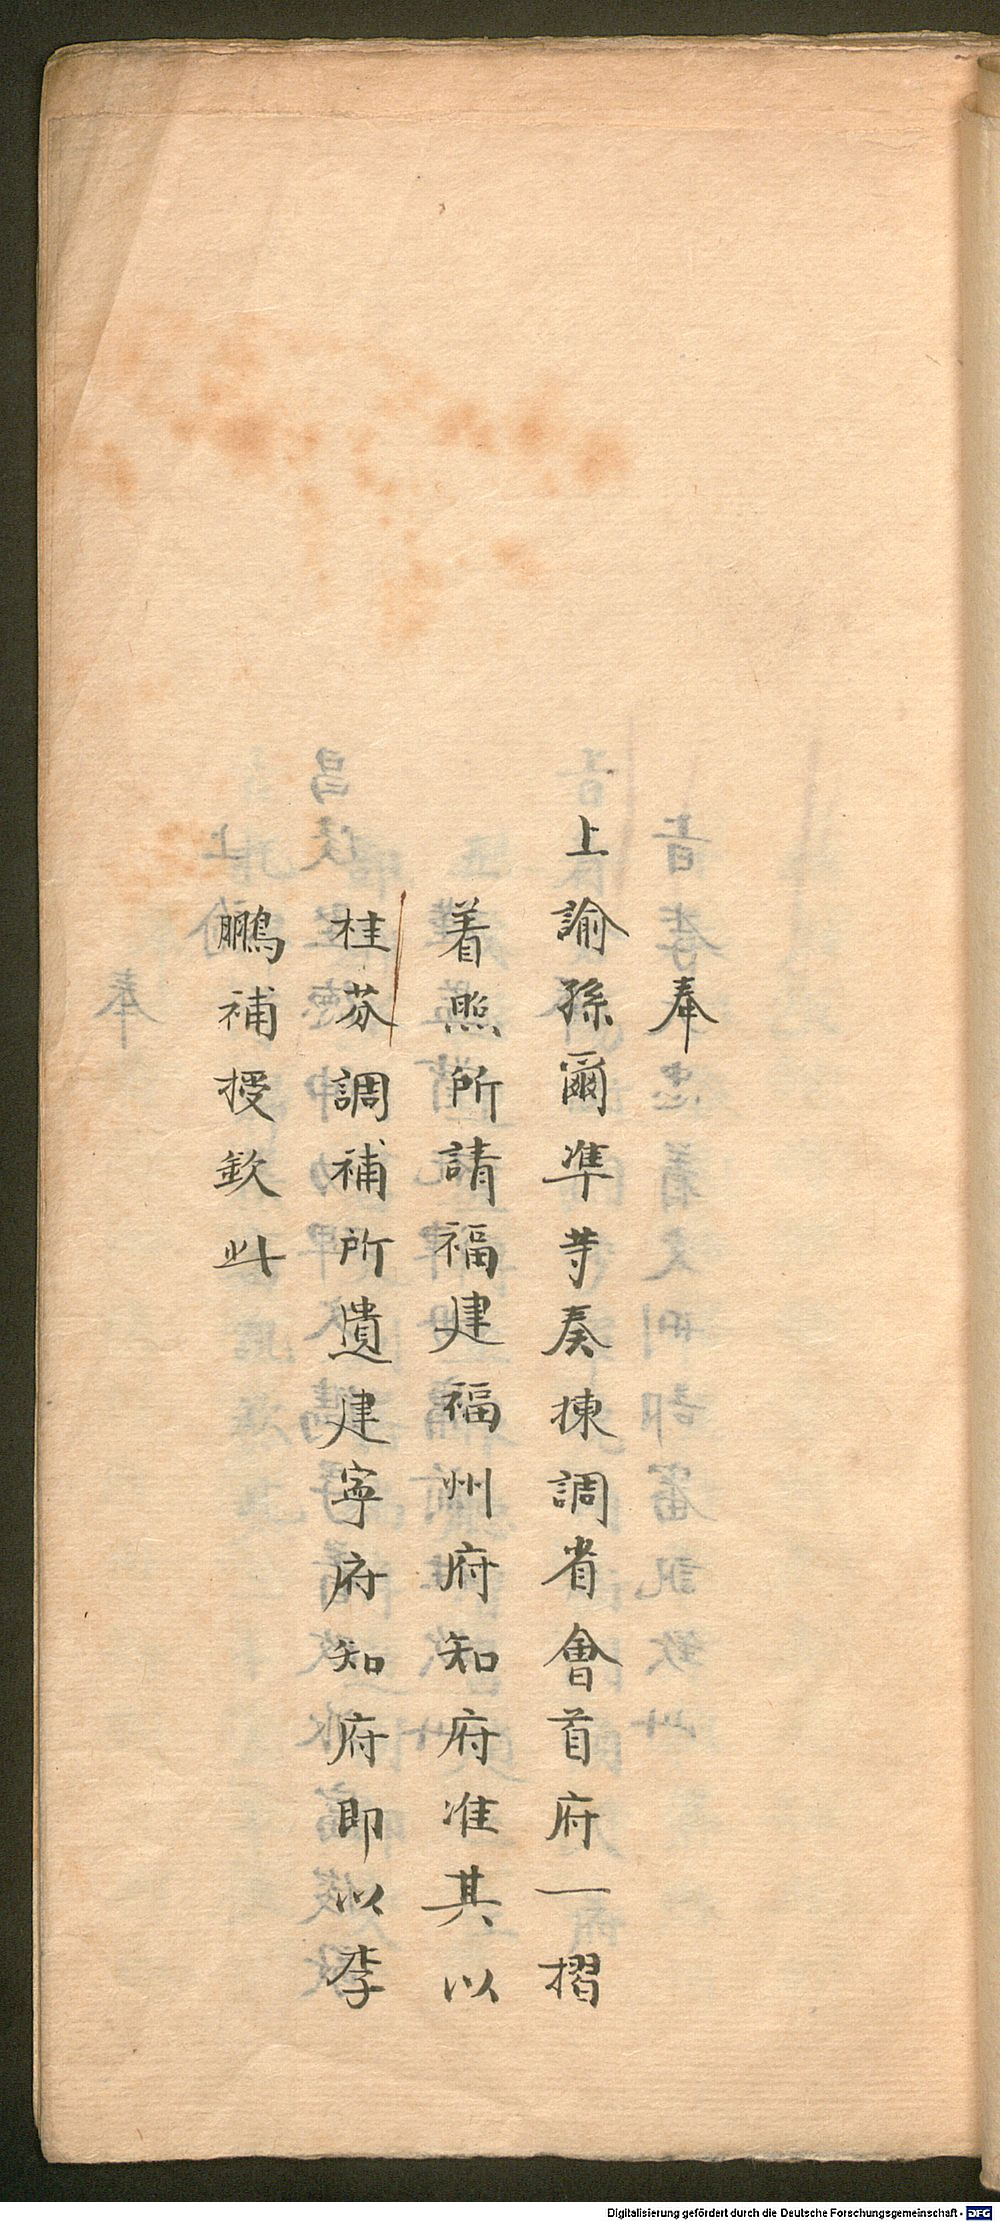 奉
上諭孫爾凖等奏揀調省會首府一摺
着照所請福建福州府知府准其以
桂芬調補所遺建寧府知府即以李
鵬補授欽此
Digitalisierung gefördert durch die Deutsche Forschungsgemeinschaft - DFG